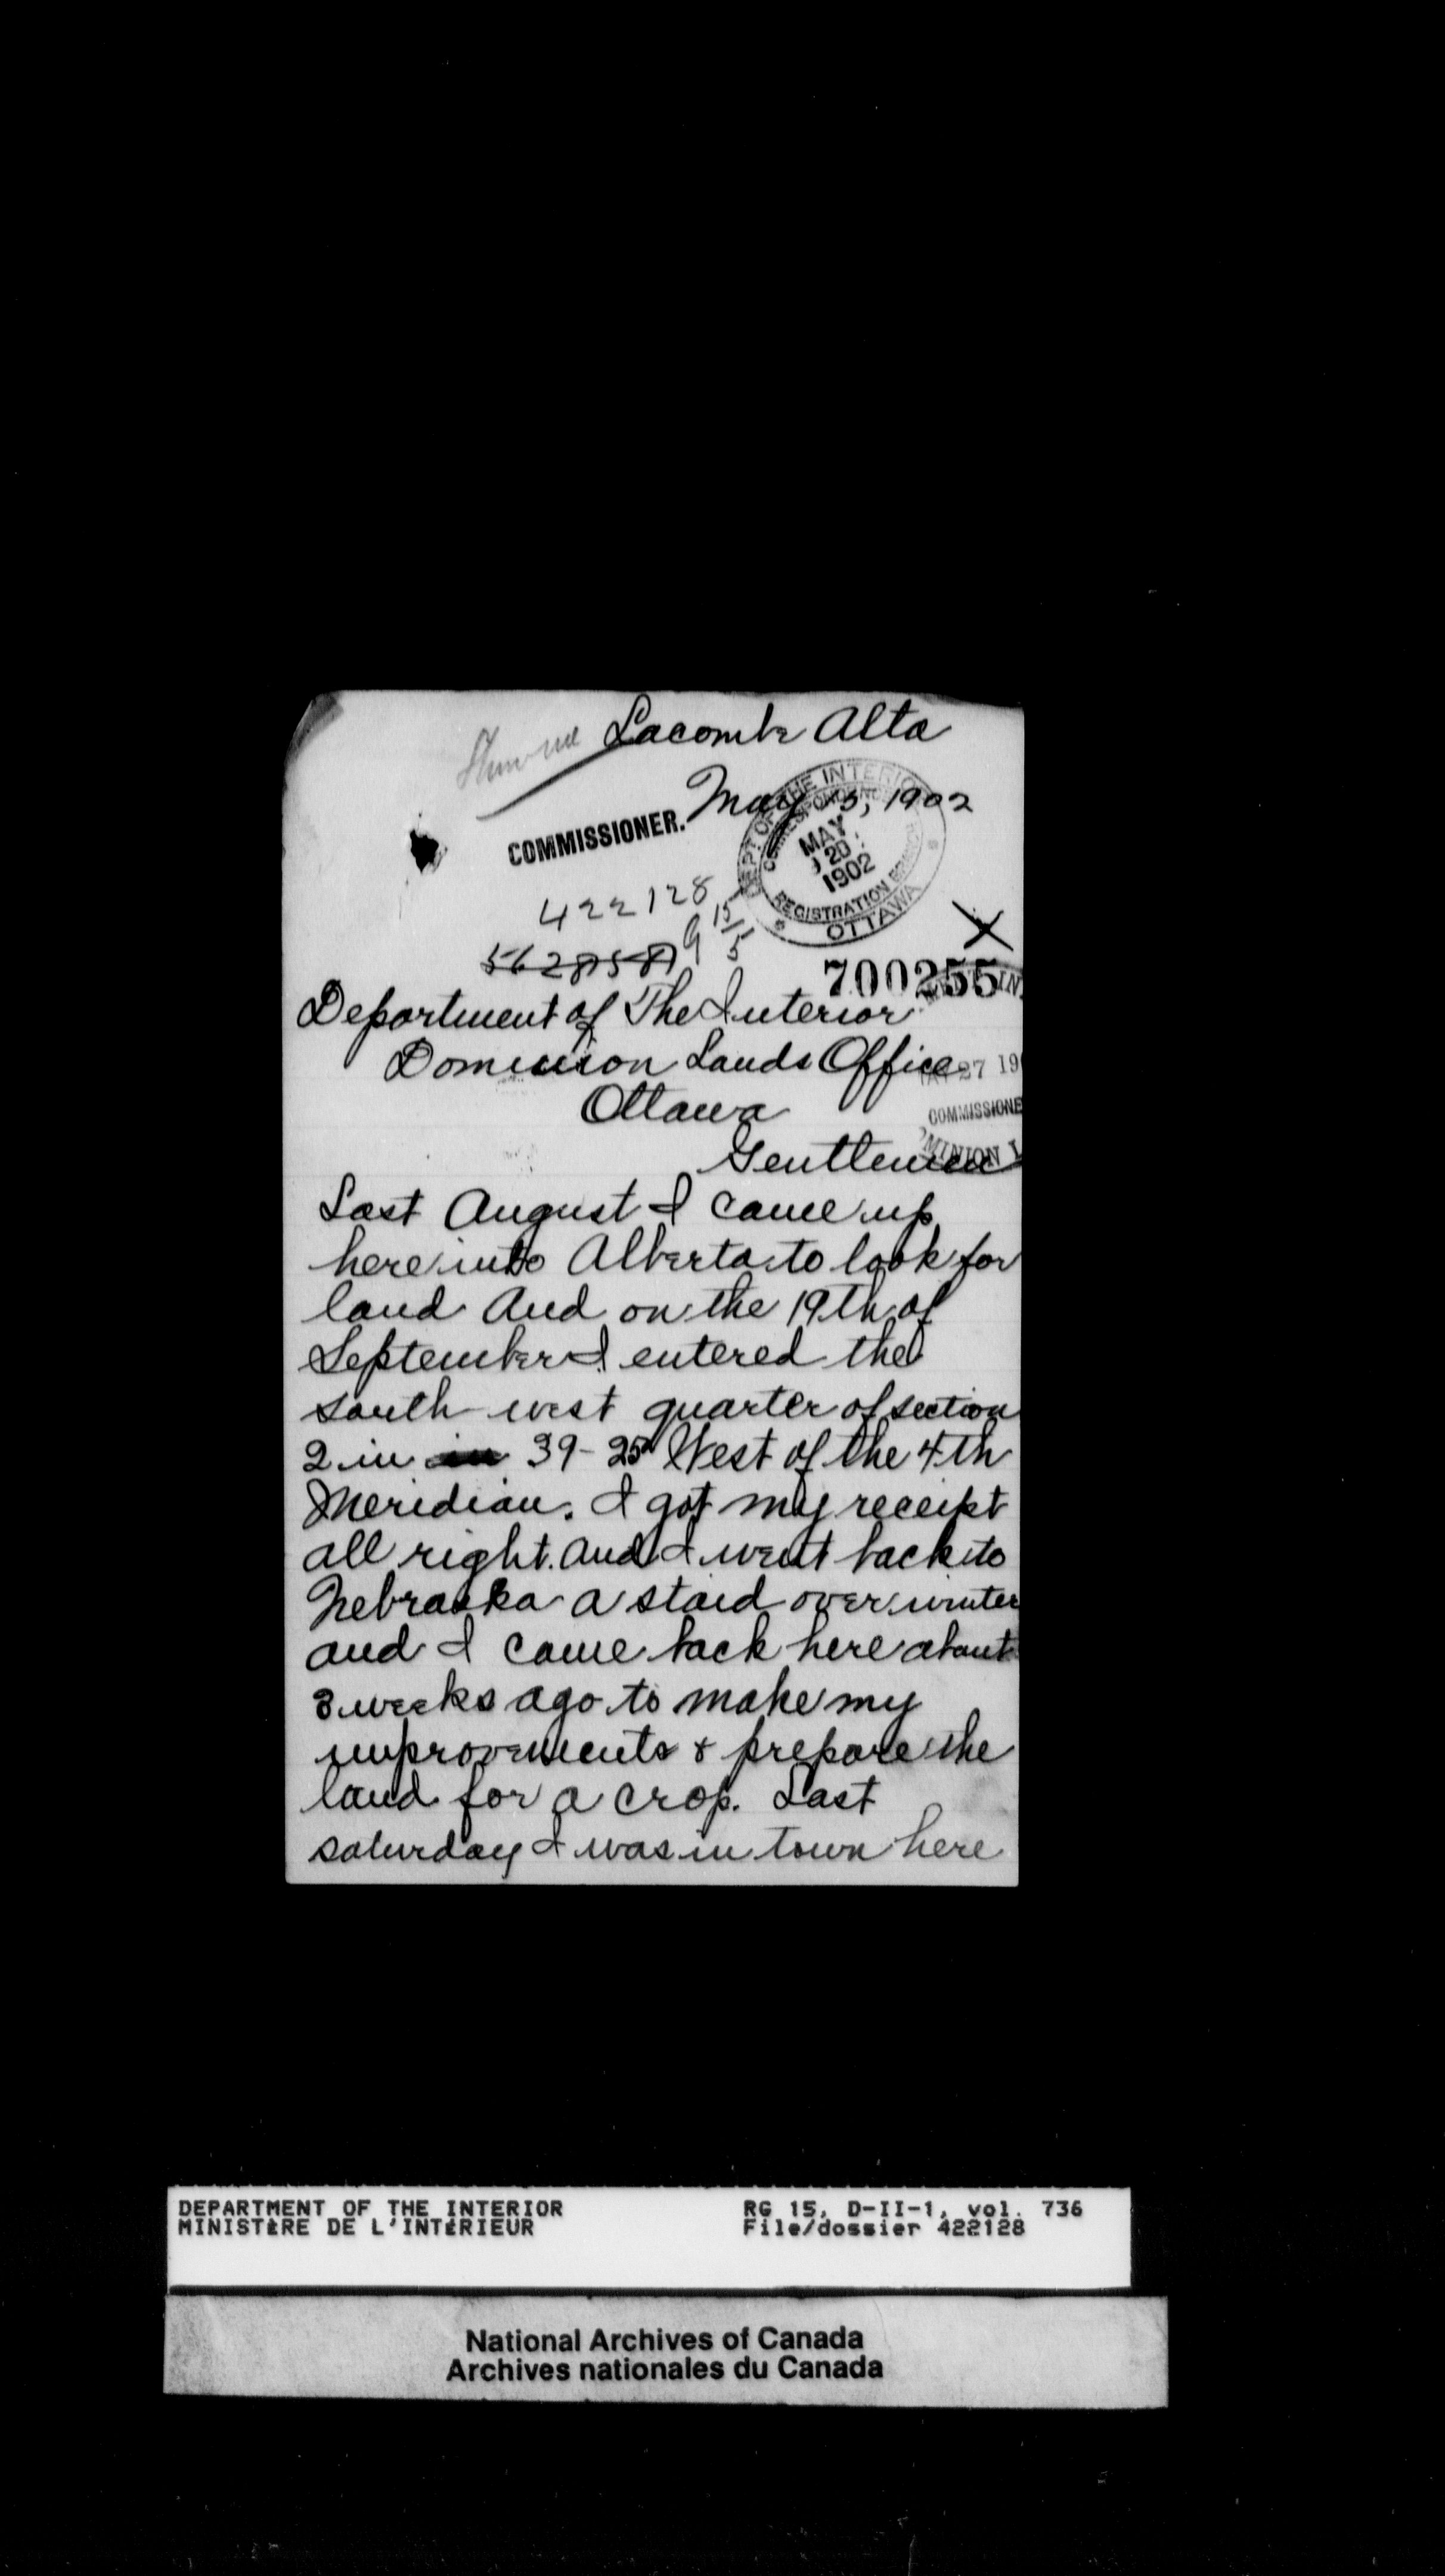 Lacombe Alta
May 5, 1902
COMMISSIONER.
DEPT OF THE INTERIOR
CORRESPONDENCE
MAY
20
1902
REGISTRATION BRANCH
OTTAWA
422128
15/5
562858
700255
Department of The Interior
Dominion Lands Office
27 19
Ottawa
COMMISSIONE
Gentlemen
MINION L
Last August I came up
here into Alberta to look for
land And on the 19th of
September I entered the
south west quarter of section
2 in in 39-25 West of the 4th
Meridian. I got my receipt
all right. And I went back to
Nebraska a staid over winter
and I came back here about
3 weeks ago to make my
improvements & prepare the
land for a crop. Last
saturday I was in town here
DEPARTMENT OF THE INTERIOR RG 15, D-II-1, vol. 736
MINISTÈRE DE L'INTÉRIEUR File/dossier 422128
National Archives of Canada
Archives nationales du Canada